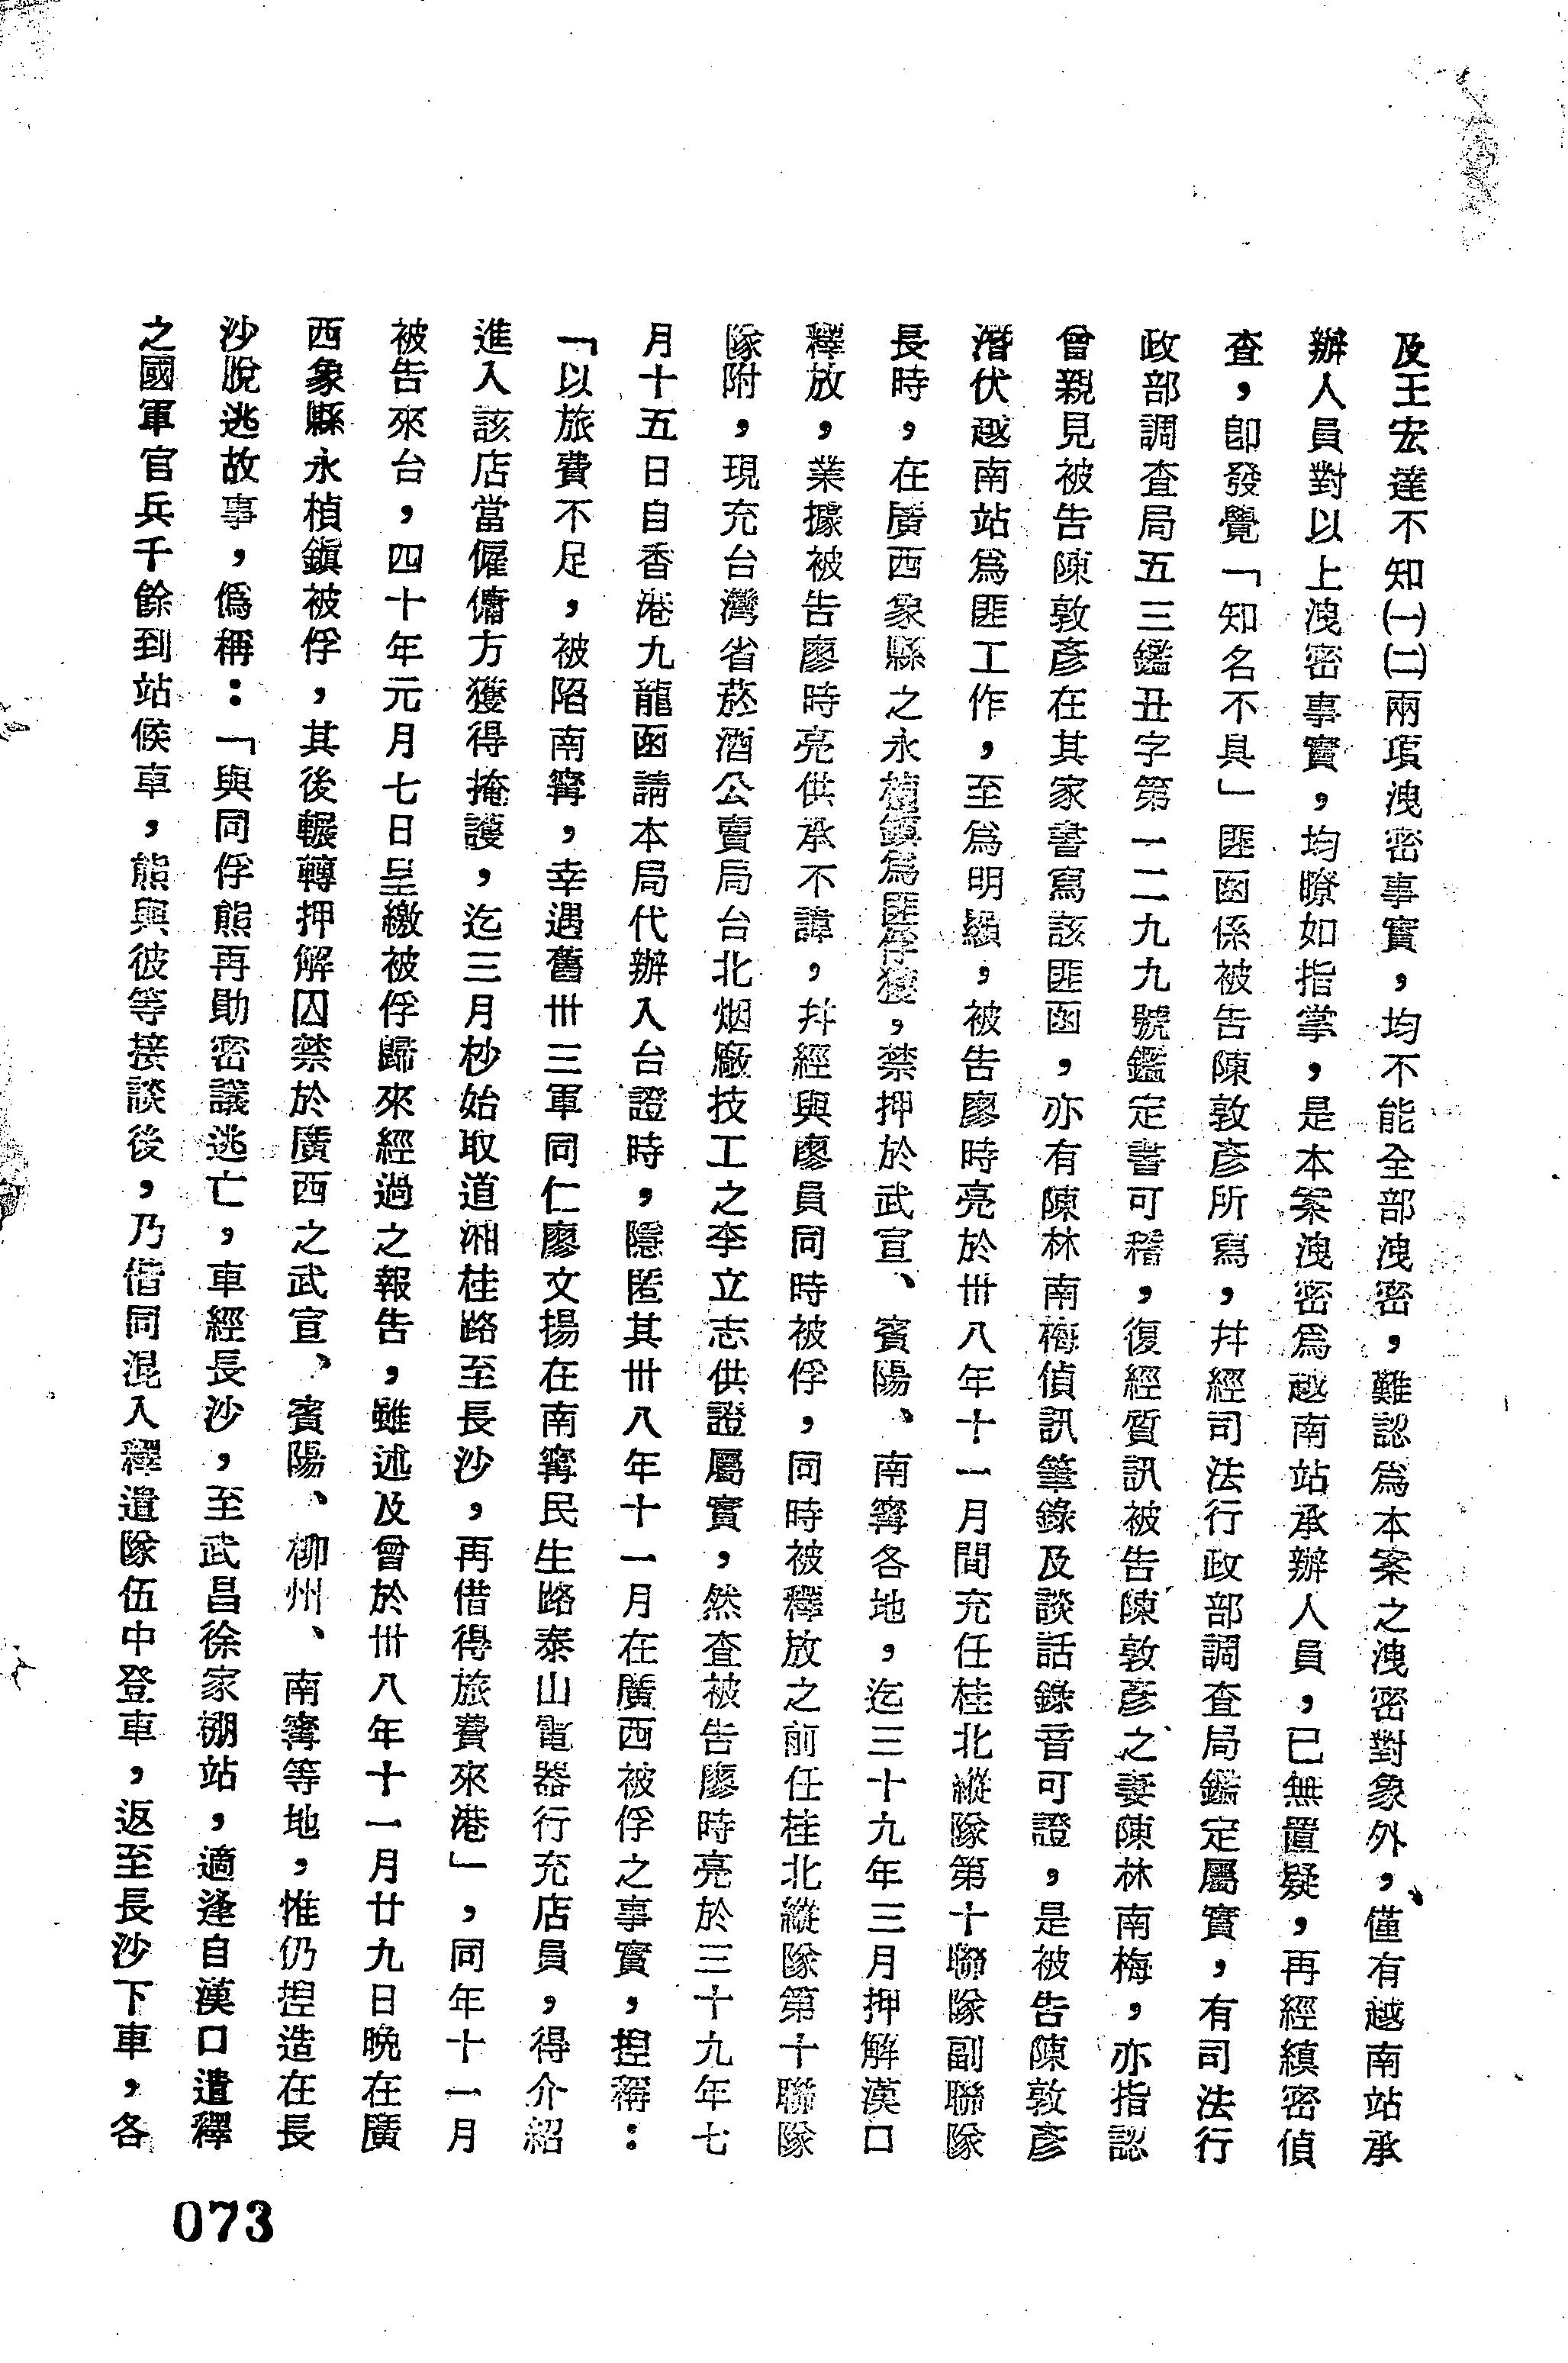 及王宏達不知㈠㈡兩項洩密事實，均不能全部洩密，難認為本案之洩密對象外，僅有越南站承
辦人員對以上洩密事實，均瞭如指掌，是本案洩密為越南站承辦人員，已無置疑，再經縝密偵
查，卽發覺「知名不具」匪函係被告陳敦彥所寫，幷經司法行政部調查局鑑定屬實，有司法行
政部調查局五三鑑丑字第一二九九號鑑定書可稽，復經質訊被告陳敦彥之妻陳林南梅，亦指認
曾親見被告陳敦彥在其家書寫該匪函，亦有陳林南梅偵訊筆錄及談話錄音可證，是被告陳敦彥
潛伏越南站為匪工作，至為明顯，被告廖時亮於卅八年十一月間充任桂北縱隊第十聯隊副聯隊
長時，在廣西象縣之永楨鎮為匪俘獲，禁押於武宣、賓陽、南寗各地，迄三十九年三月押解漢口
釋放，業據被告廖時亮供承不諱，幷經與廖員同時被俘，同時被釋放之前任桂北縱隊第十聯隊
隊附，現充台灣省菸酒公賣局台北烟廠技工之李立志供證屬實，然查被告廖時亮於三十九年七
月十五日自香港九龍函請本局代辦入台證時，隱匿其卅八年十一月在廣西被俘之事實，揑稱：
「以旅費不足，被陷南寗，幸遇舊卅三軍同仁廖文揚在南寗民生路泰山電器行充店員，得介紹
進入該店當僱傭方獲得掩護，迄三月杪始取道湘桂路至長沙，再借得旅費來港」，同年十一月
被告來台，四十年元月七日呈繳被俘歸來經過之報告，雖述及曾於卅八年十一月廿九日晚在廣
西象縣永楨鎮被俘，其後輾轉押解囚禁於廣西之武宣、賓陽、柳州、南寗等地，惟仍揑造在長
沙脫逃故事，僞稱：「與同俘熊再勛密議逃亡，車經長沙，至武昌徐家棚站，適逢自漢口遣釋
之國軍官兵千餘到站候車，熊與彼等接談後，乃偕同混入釋遣隊伍中登車，返至長沙下車，各
073